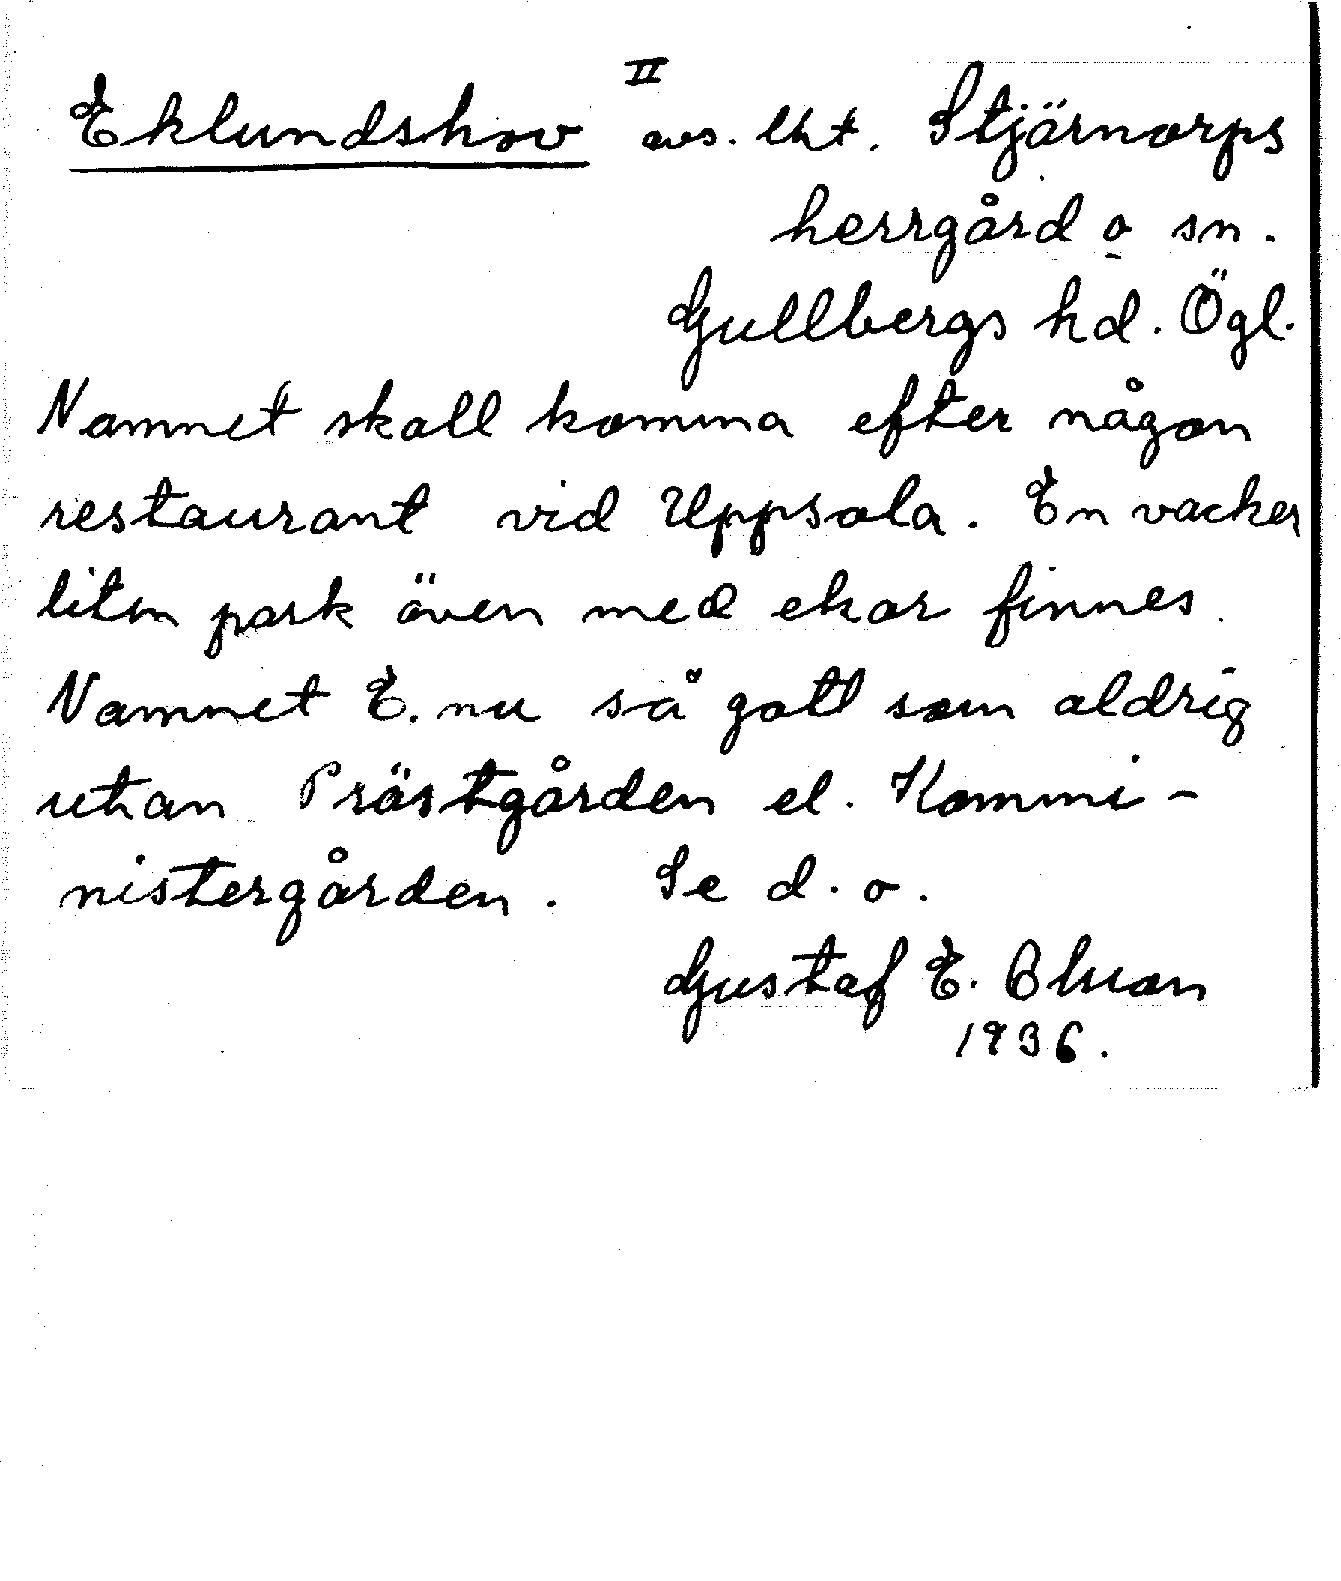 II
Eklundshov avs. lht. Stjärnorps
herrgård o sn.
Gullbergs hd. Ögl.
Namnet skall komma efter någon
restaurant vid Uppsala. En vacker
liten park även med ekar finnes.
Namnet E. nu så gott som aldrig
utan Prästgården el. Kommi-
nistergården. Se d. o.
Gustaf E.
1936.